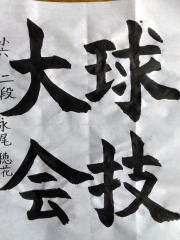 球技
大会
小六 二段 永尾穂花